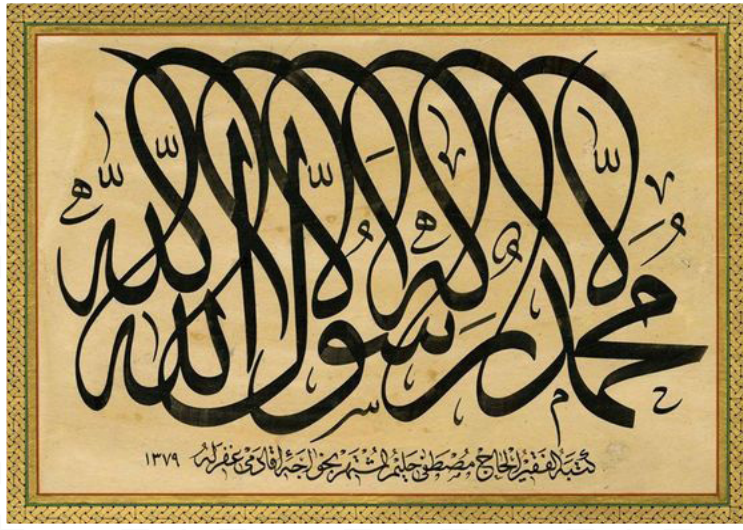 لا إله إلا الله
محمد رسول الله
كتبه الفقير الحاج مصطفى حليم المشتهر بخواجه اقادمى غفر له ١٣٧٩